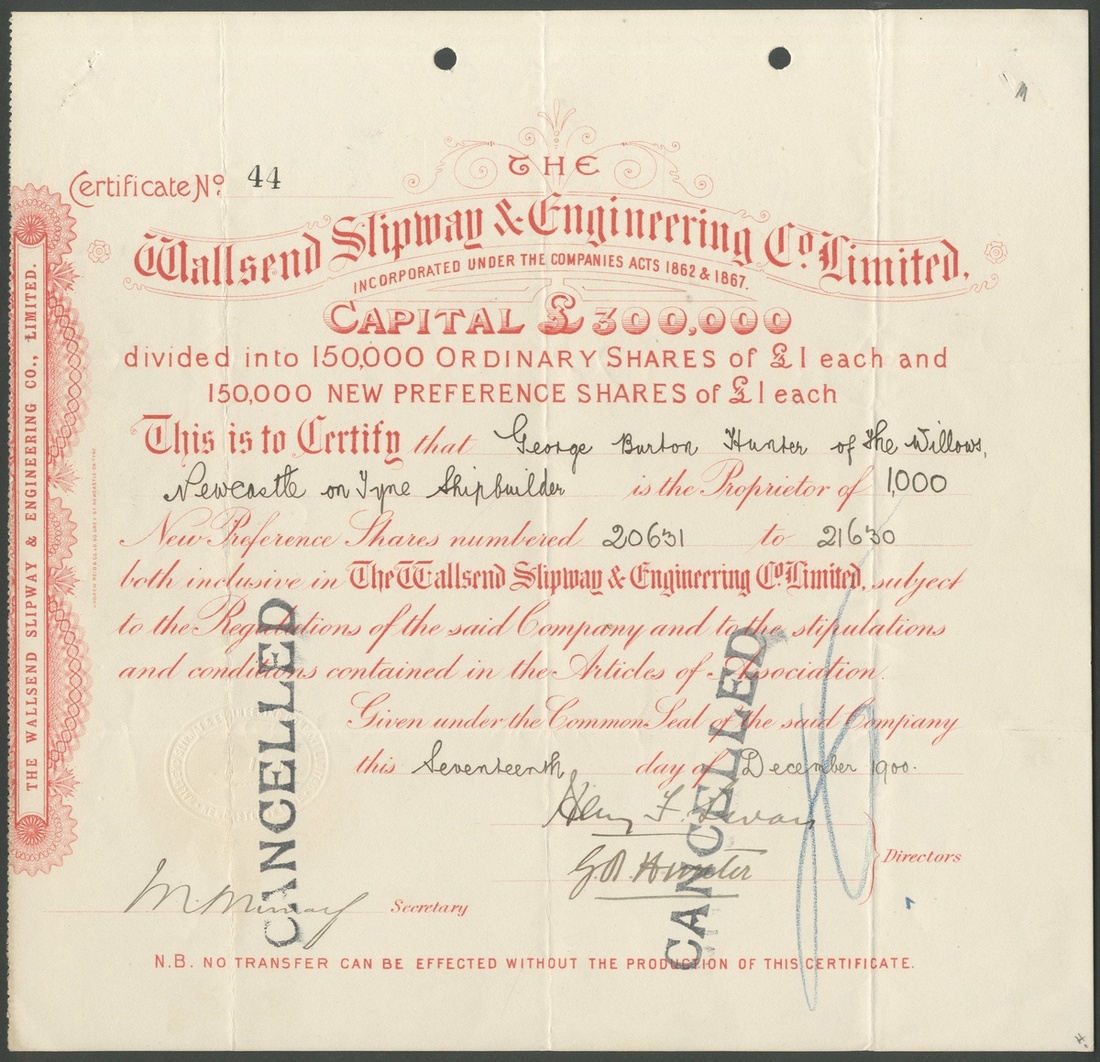 THE
Certificate No. 44
Wallsend Slipway & Engineering Co. Limited.
INCORPORATED UNDER THE COMPANIES ACTS 1862 & 1867.
CAPITAL £300,000
divided into 150,000 ORDINARY SHARES of £1 each and
150,000 NEW PREFERENCE SHARES of £1 each
This is to Certify that George Burton Hunter of The Willows,
Newcastle on Tyne Shipbuilder is the Proprietor of 1,000
New Preference Shares numbered 20631 to 21630
both inclusive in The Wallsend Slipway & Engineering Co. Limited, subject
to the Regulations of the said Company and to the stipulations
and conditions contained in the Articles of Association.
Given under the Common Seal of the said Company
this Seventeenth day of December 1900.
Henry F. Swan
G.B. Hunter
Directors
Secretary
N.B. NO TRANSFER CAN BE EFFECTED WITHOUT THE PRODUCTION OF THIS CERTIFICATE.
THE WALLSEND SLIPWAY & ENGINEERING CO., LIMITED.
CANCELLED
CANCELLED